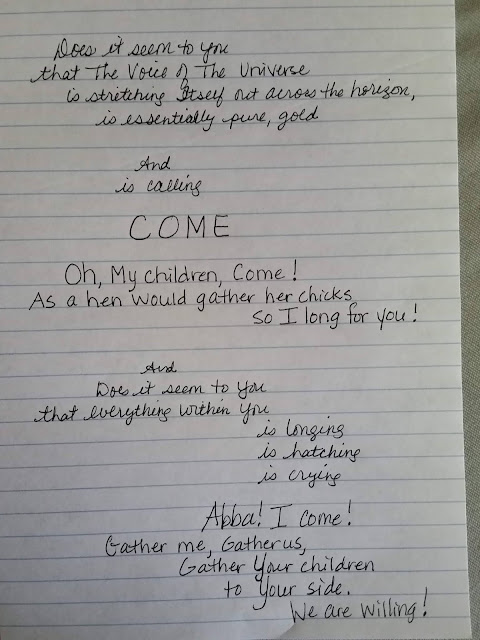 Does it seem to you
that The Voice of The Universe
is stretching Itself out across the horizon,
is essentially pure, gold
And
is calling
COME
Oh, My children, Come!
As a hen would gather her chicks
so I long for you!
And
Does it seem to you
that everything within you
is longing
is hatching
is crying
Abba! I come!
Gather me, Gather us,
Gather Your children
to Your side.
We are willing!